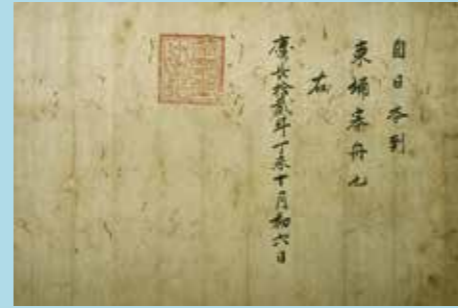 自日本到
東埔寨舟也
右
慶長拾貳年丁未十月初六日